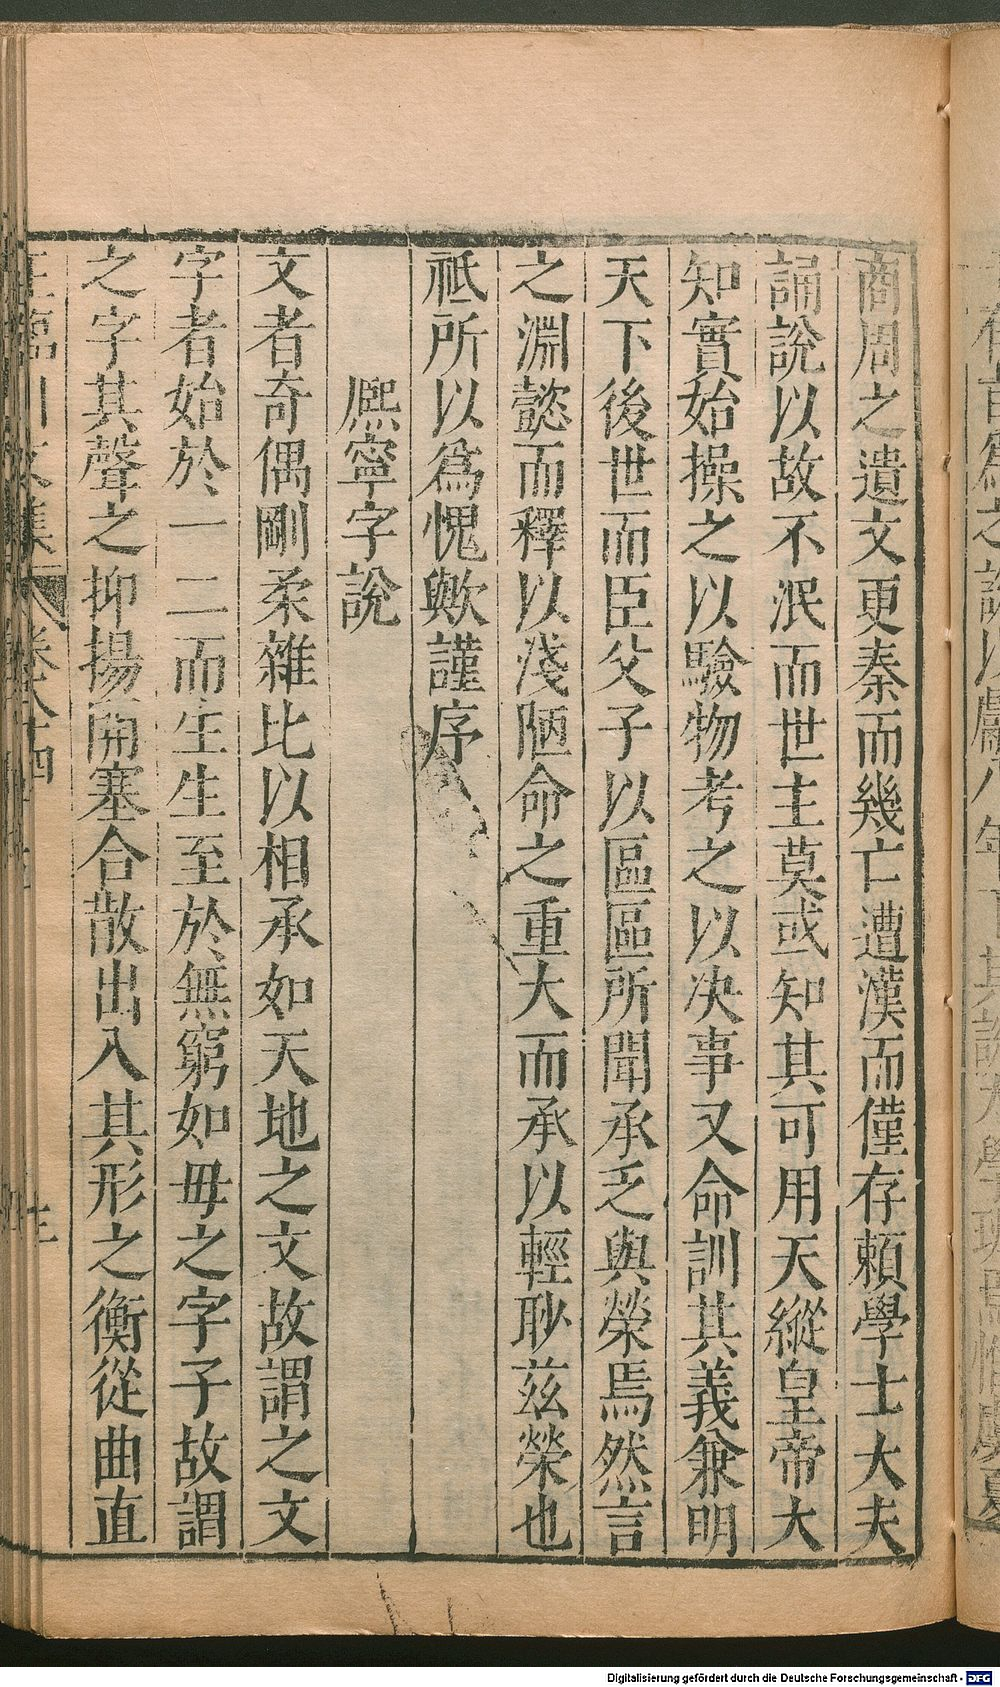 商周之遺文更秦而幾亡遭漢而僅存賴學士大夫
誦說以故不泯而世主莫或知其可用天縱皇帝大
知實始操之以驗物考之以决事又命訓其義兼明
天下後世而臣父子以區區所聞承乏與榮焉然言
之淵懿而釋以淺陋命之重大而承以輕眇茲榮也
祗所以爲愧歟謹序
熈寧字說
文者奇偶剛柔雜比以相承如天地之文故謂之文
字者始於一二而生生至於無窮如毋之字子故謂
之字其聲之抑揚開塞合散出入其形之衡從曲直
王臨川文集 卷八十四
Digitalisierung gefördert durch die Deutsche Forschungsgemeinschaft - DFG